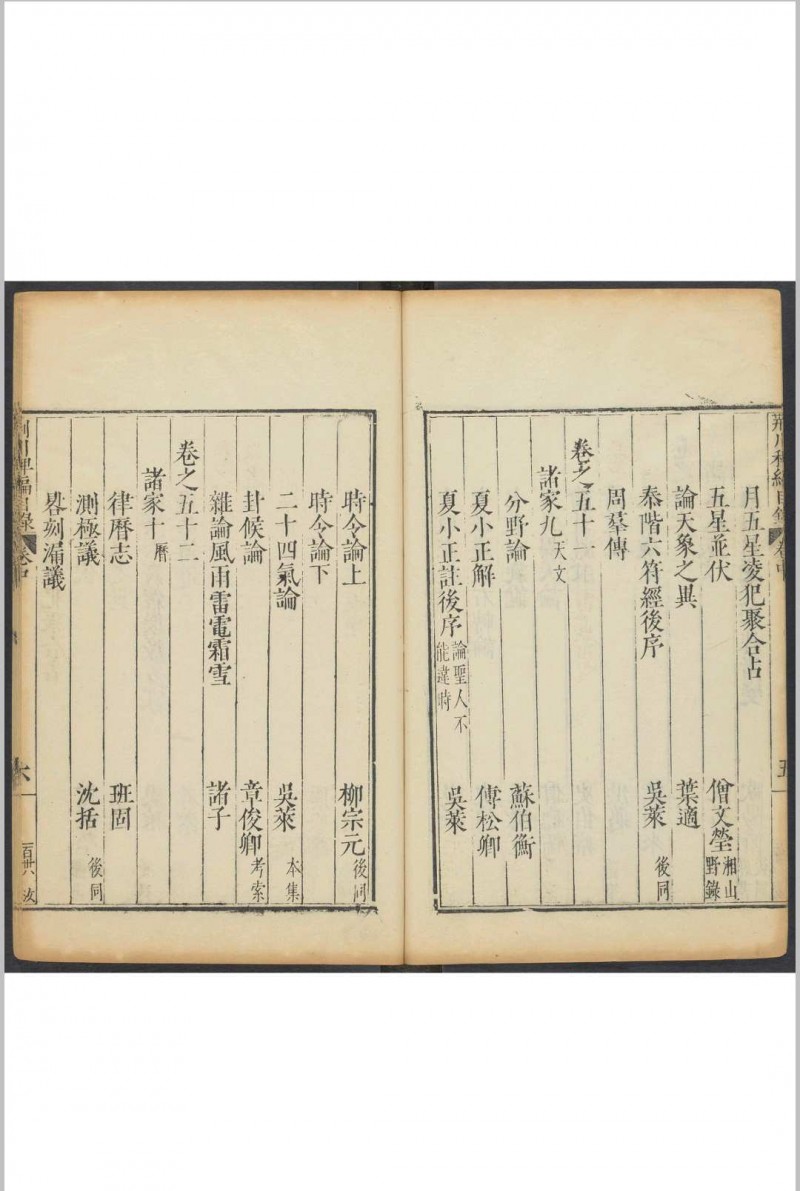 荆川稗編目錄 卷中 五
月五星凌犯聚合占
五星並伏 僧文瑩 湘山野錄
論天象之異 葉適
泰階六符經後序 吳萊 後同
周羣傳
卷之五十一
諸家九 天文
分野論 蘇伯衡
夏小正解 傅松卿
夏小正註後序 論聖人不能違時 吳萊
時令論上 柳宗元 後同
時令論下
二十四氣論 吳萊 本集
卦候論 章俊卿 考索
雜論風雨雷電霜雪 諸子
卷之五十二
諸家十 曆
律曆志 班固
測極議 沈括 後同
晷刻漏議
荆川稗編目錄 卷中 六 百卅六 汝